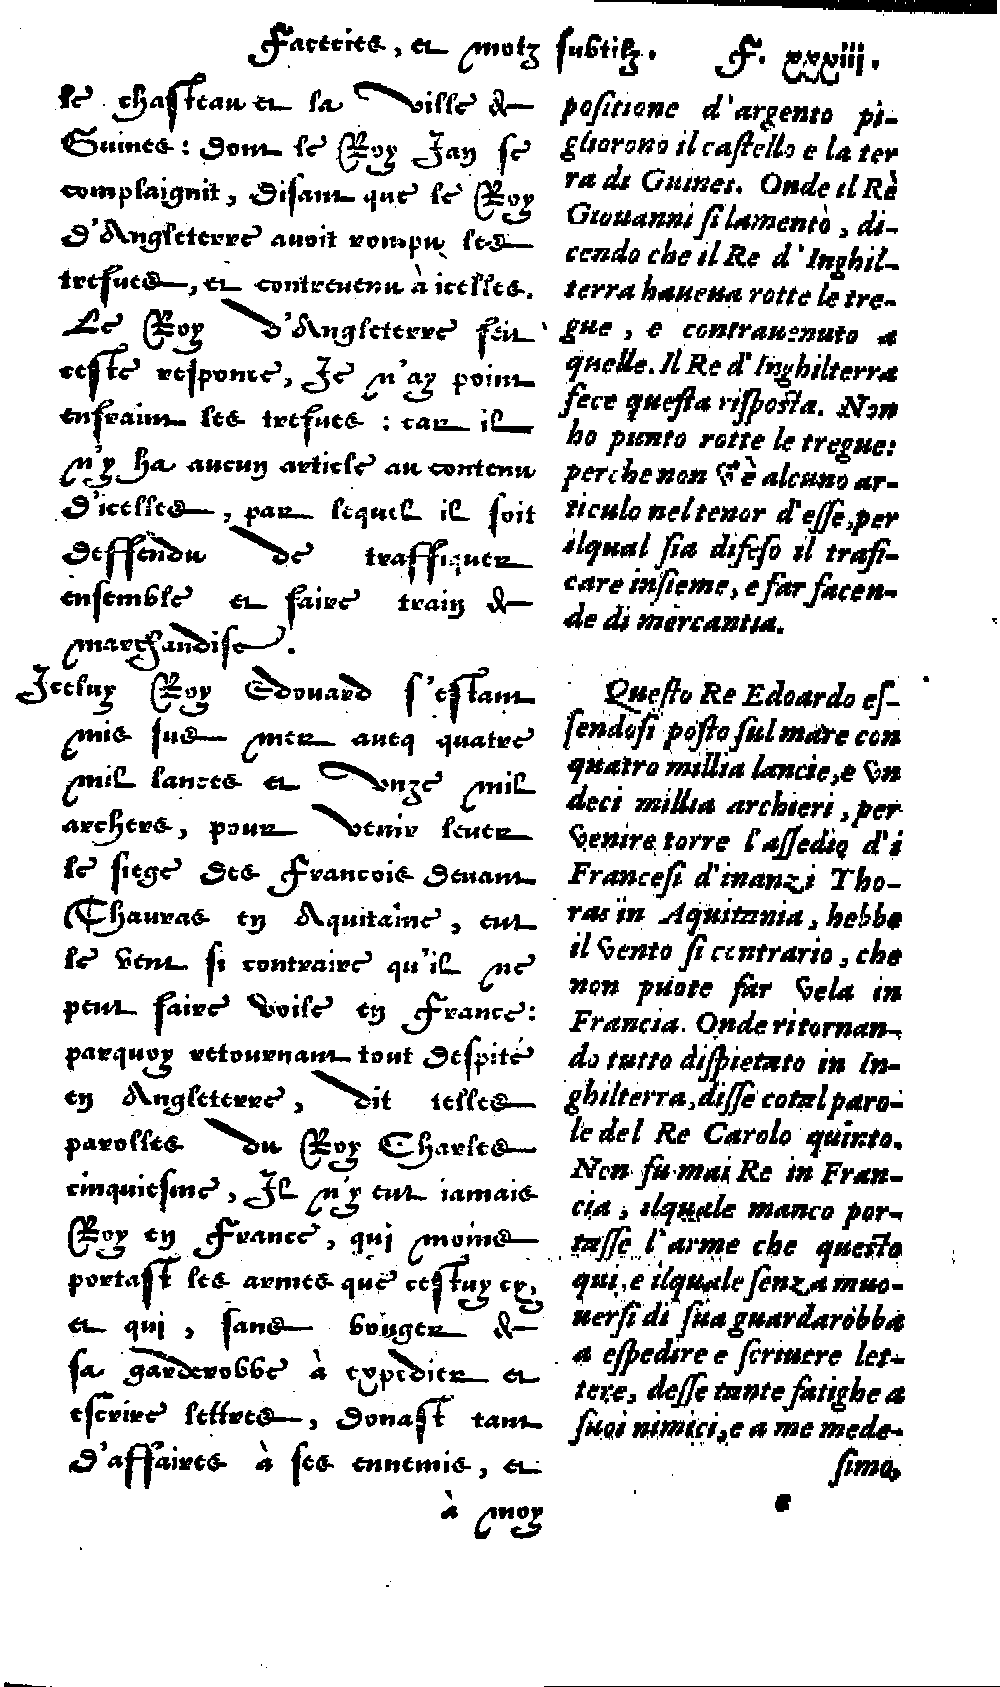 Faceties, et motz subtilz. F. xxxiij.
le chasteau et la ville de
Guines: dont le Roy Jan se
complaignit, disant que le Roy
d'Angleterre avoit rompu les
trefues, et contreuenu à icelles.
Le Roy d'Angleterre feit
ceste responce, Je n'ay point
enfraint les trefues : car il
n'y ha aucun article au contenu
d'icelles, par lequel il soit
deffendu de traffiquer
ensemble et faire train de
marchandise.
Iceluy Roy Edouard s'estant
mis sus mer auec quatre
mil lances et vnze mil
archers, pour venir leuer
le siege des Francois deuant
Thauras en Aquitaine, eut
le vent si contraire qu'il ne
peut faire voile en France:
parquoy retournant tout despité
en Angleterre, dit telles
parolles du Roy Charles
cinquiesme, Il n'y eut iamais
Roy en France, qui moins
portast les armes que cestuy cy,
et qui, sans bouger de
sa garderobbe à expedier et
escrire lettres, donast tant
d'affaires à ses ennemis, et
à moy
positione d'argento pi-
gliorono il castello e la ter
ra di Guines. Onde il Rè
Giouanni si lamentò, di-
cendo che il Re d'Inghil-
terra haueua rotte le tre-
gue, e contrauenuto a
quelle. Il Re d'Inghilterra
fece questa risposta. Non
ho punto rotte le tregue:
perche non v'è alcuno ar-
ticulo nel tenor d'esse, per
ilqual sia difeso il trafi-
care insieme, e far facen-
de di mercantia.
Questo Re Edoardo es-
sendosi posto sul mare con
quatro millia lancie, e vn
deci millia archieri, per
venire torre l'assedio d'i
Francesi d'inanzi Tho-
ras in Aquitania, hebbe
il vento si contrario, che
non puote far vela in
Francia. Onde ritornan-
do tutto dispietato in In-
ghilterra, disse cotal paro-
le del Re Carolo quinto.
Non fu mai Re in Fran-
cia, ilquale manco por-
tasse l'arme che questo
qui, e ilquale senza muo-
uersi di sua guardarobba
a espedire e scriuere let-
tere, desse tante fatighe a
suoi nimici, e a me mede-
simo,
e